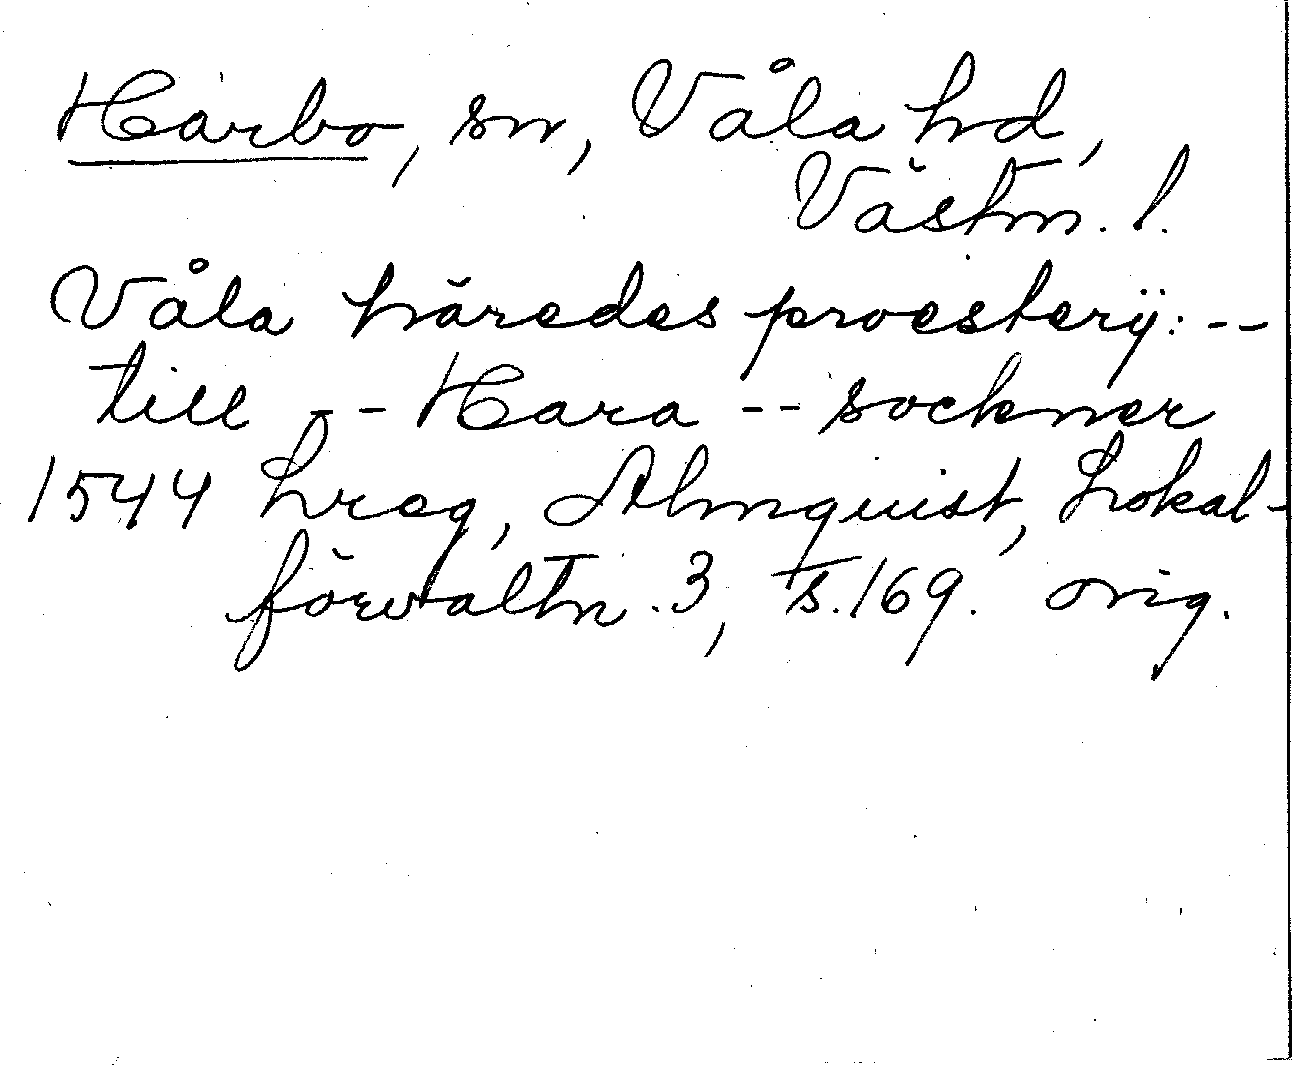 Harbo, sn, Våla hd,
Västm. l.
Våla häredes proesterÿ: --
till -- Hara -- sockner
1544 Lreg, Almquist, Lokal-
förvaltn. 3, s. 169. orig.